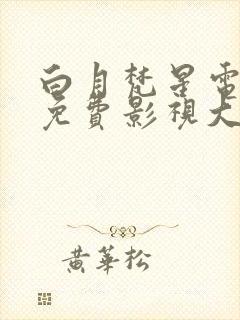 白月梵星電
免費影視大
黃華松